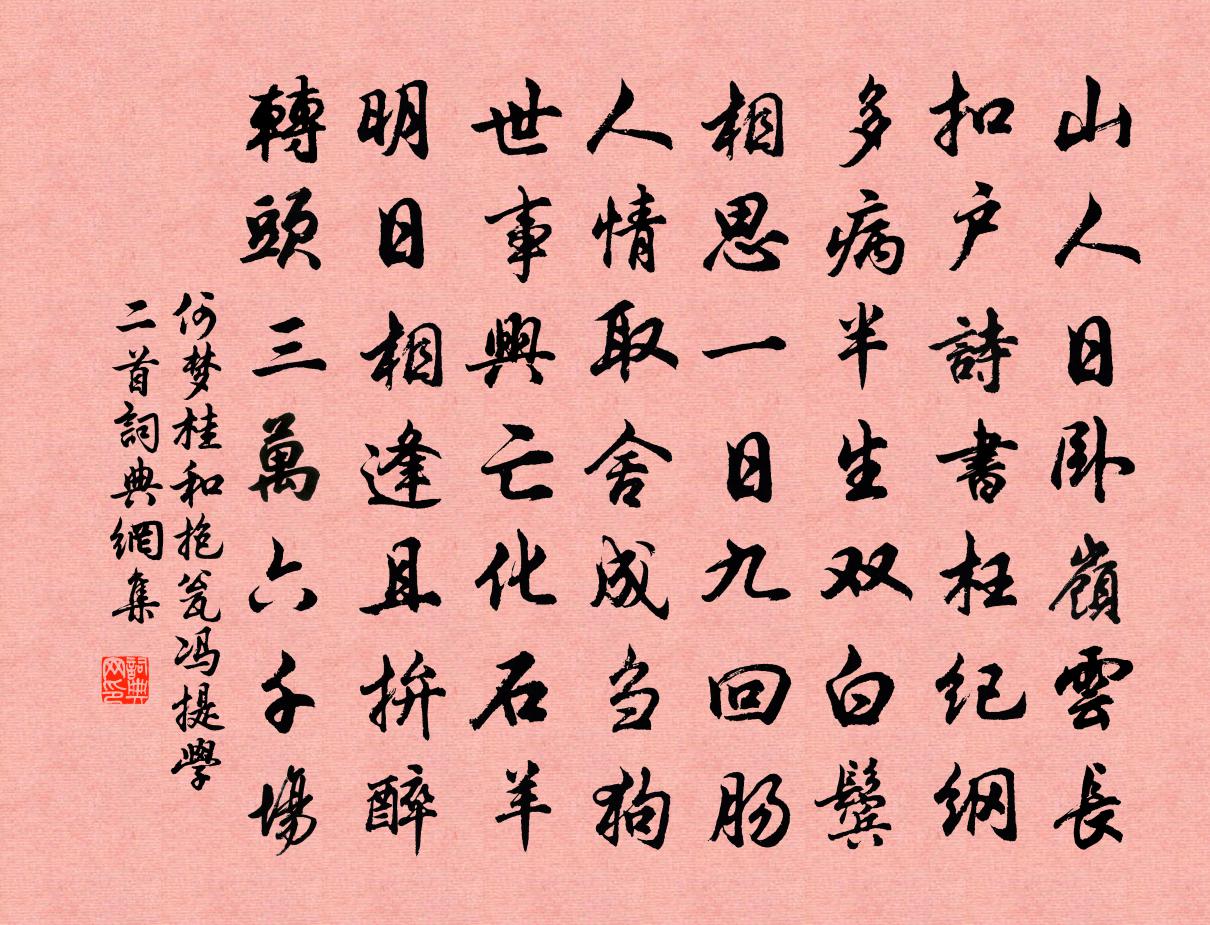 山人日卧嶺雲長
扣户詩書枉纪纲
多病半生双白鬓
相思一日九回肠
人情取舍成刍狗
世事興亡化石羊
明日相逢且拚醉
轉頭三萬六千場
何梦桂和抱瓮冯提學
二首詞典網集
詞典
网印